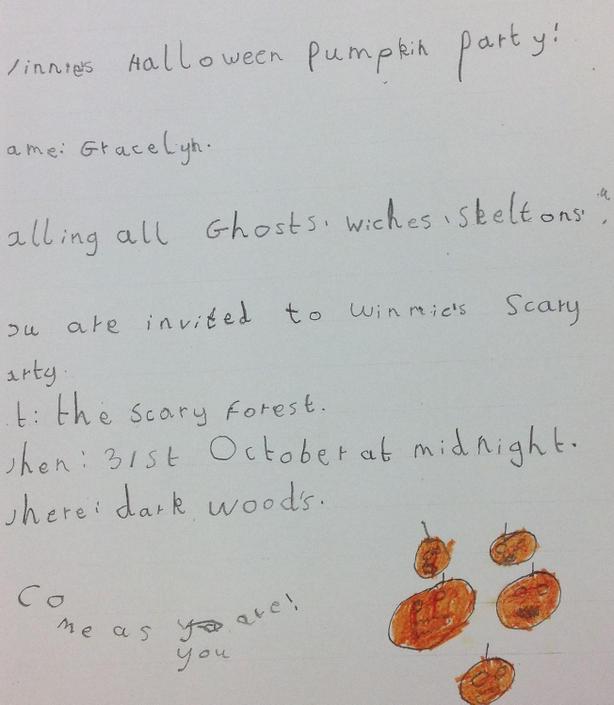 innie's Halloween Pumpkin party!
ame: Gracelyn.
alling all Ghosts, wiches, Skeltons,
ou are invited to Winnie's Scary
arty.
t: the Scary Forest.
hen: 31st October at midnight.
here: dark wood's.
Co
me as you are!